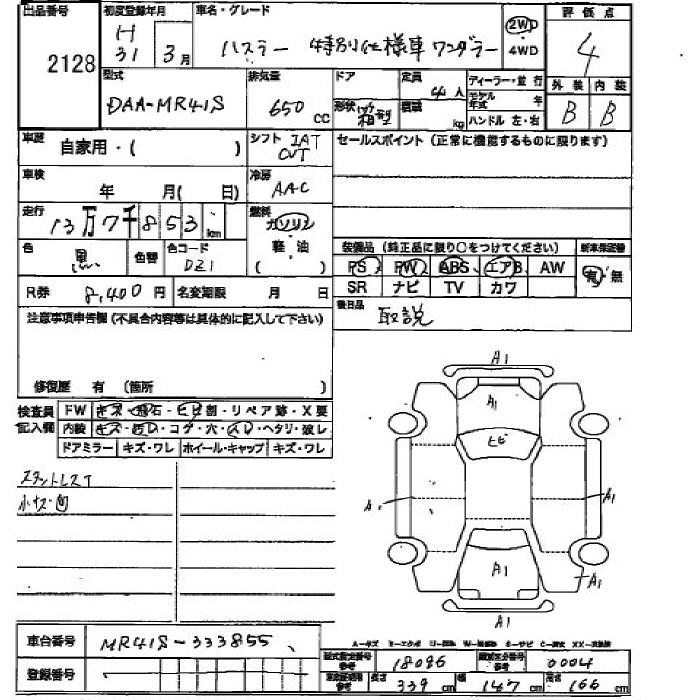 出品番号 初度登録年月 車名・グレード 評価点
2128 H 31 3月 ハスラー 特別仕様車 ワンダラー 2WD 4WD 4
型式 排気量 ドア 定員 ディーラー・並行 外装 内装
DAA-MR41S 650 cc 形状 箱型 4人 積載 kg モデル年式 年 ハンドル 左・右 B B
車歴 自家用・( ) シフト IAT CVT セールスポイント(正常に機能するものに限ります)
車検 年 月( 日) 冷房 AAC
走行 13万7千853 km 燃料 ガソリン
色 黒 色替 色コード DZ1 軽・油 ( ) 装備品(純正品に限り○をつけてください) 新車保証書
PS PW ABS エアB AW 有・無
R券 8,400円 名変期限 月 日 SR ナビ TV カワ
注意事項申告欄(不具合内容等は具体的に記入して下さい) 後日品 取説
修復歴 有 (箇所 )
検査員記入欄 FW キズ・飛石・ヒビ割・リペア跡・X要
内装 キズ・汚れ・コゲ・穴・スレ・ヘタリ・破レ
ドアミラー キズ・ワレ ホイール・キャップ キズ・ワレ
小キズ・凹
A1
A1
ヒビ
A1
A1
A1
A1
車台番号 MR41S-333855
登録番号
型式指定番号 参考 18096 類別区分番号 参考 0004
長さ 339 cm 幅 147 cm 高さ 166 cm